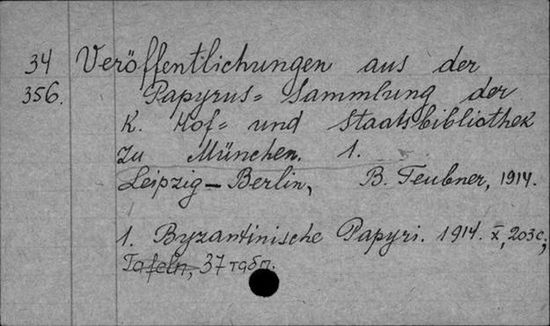 34 Veröffentlichungen aus der
356. Papyrus= Sammlung der
K. Hof= und Staatsbibliothek
zu München. 1.
Leipzig – Berlin, B. Teubner, 1914.
1. Byzantinische Papyri. 1914. X, 203 с,
Tafeln, 37 табл.